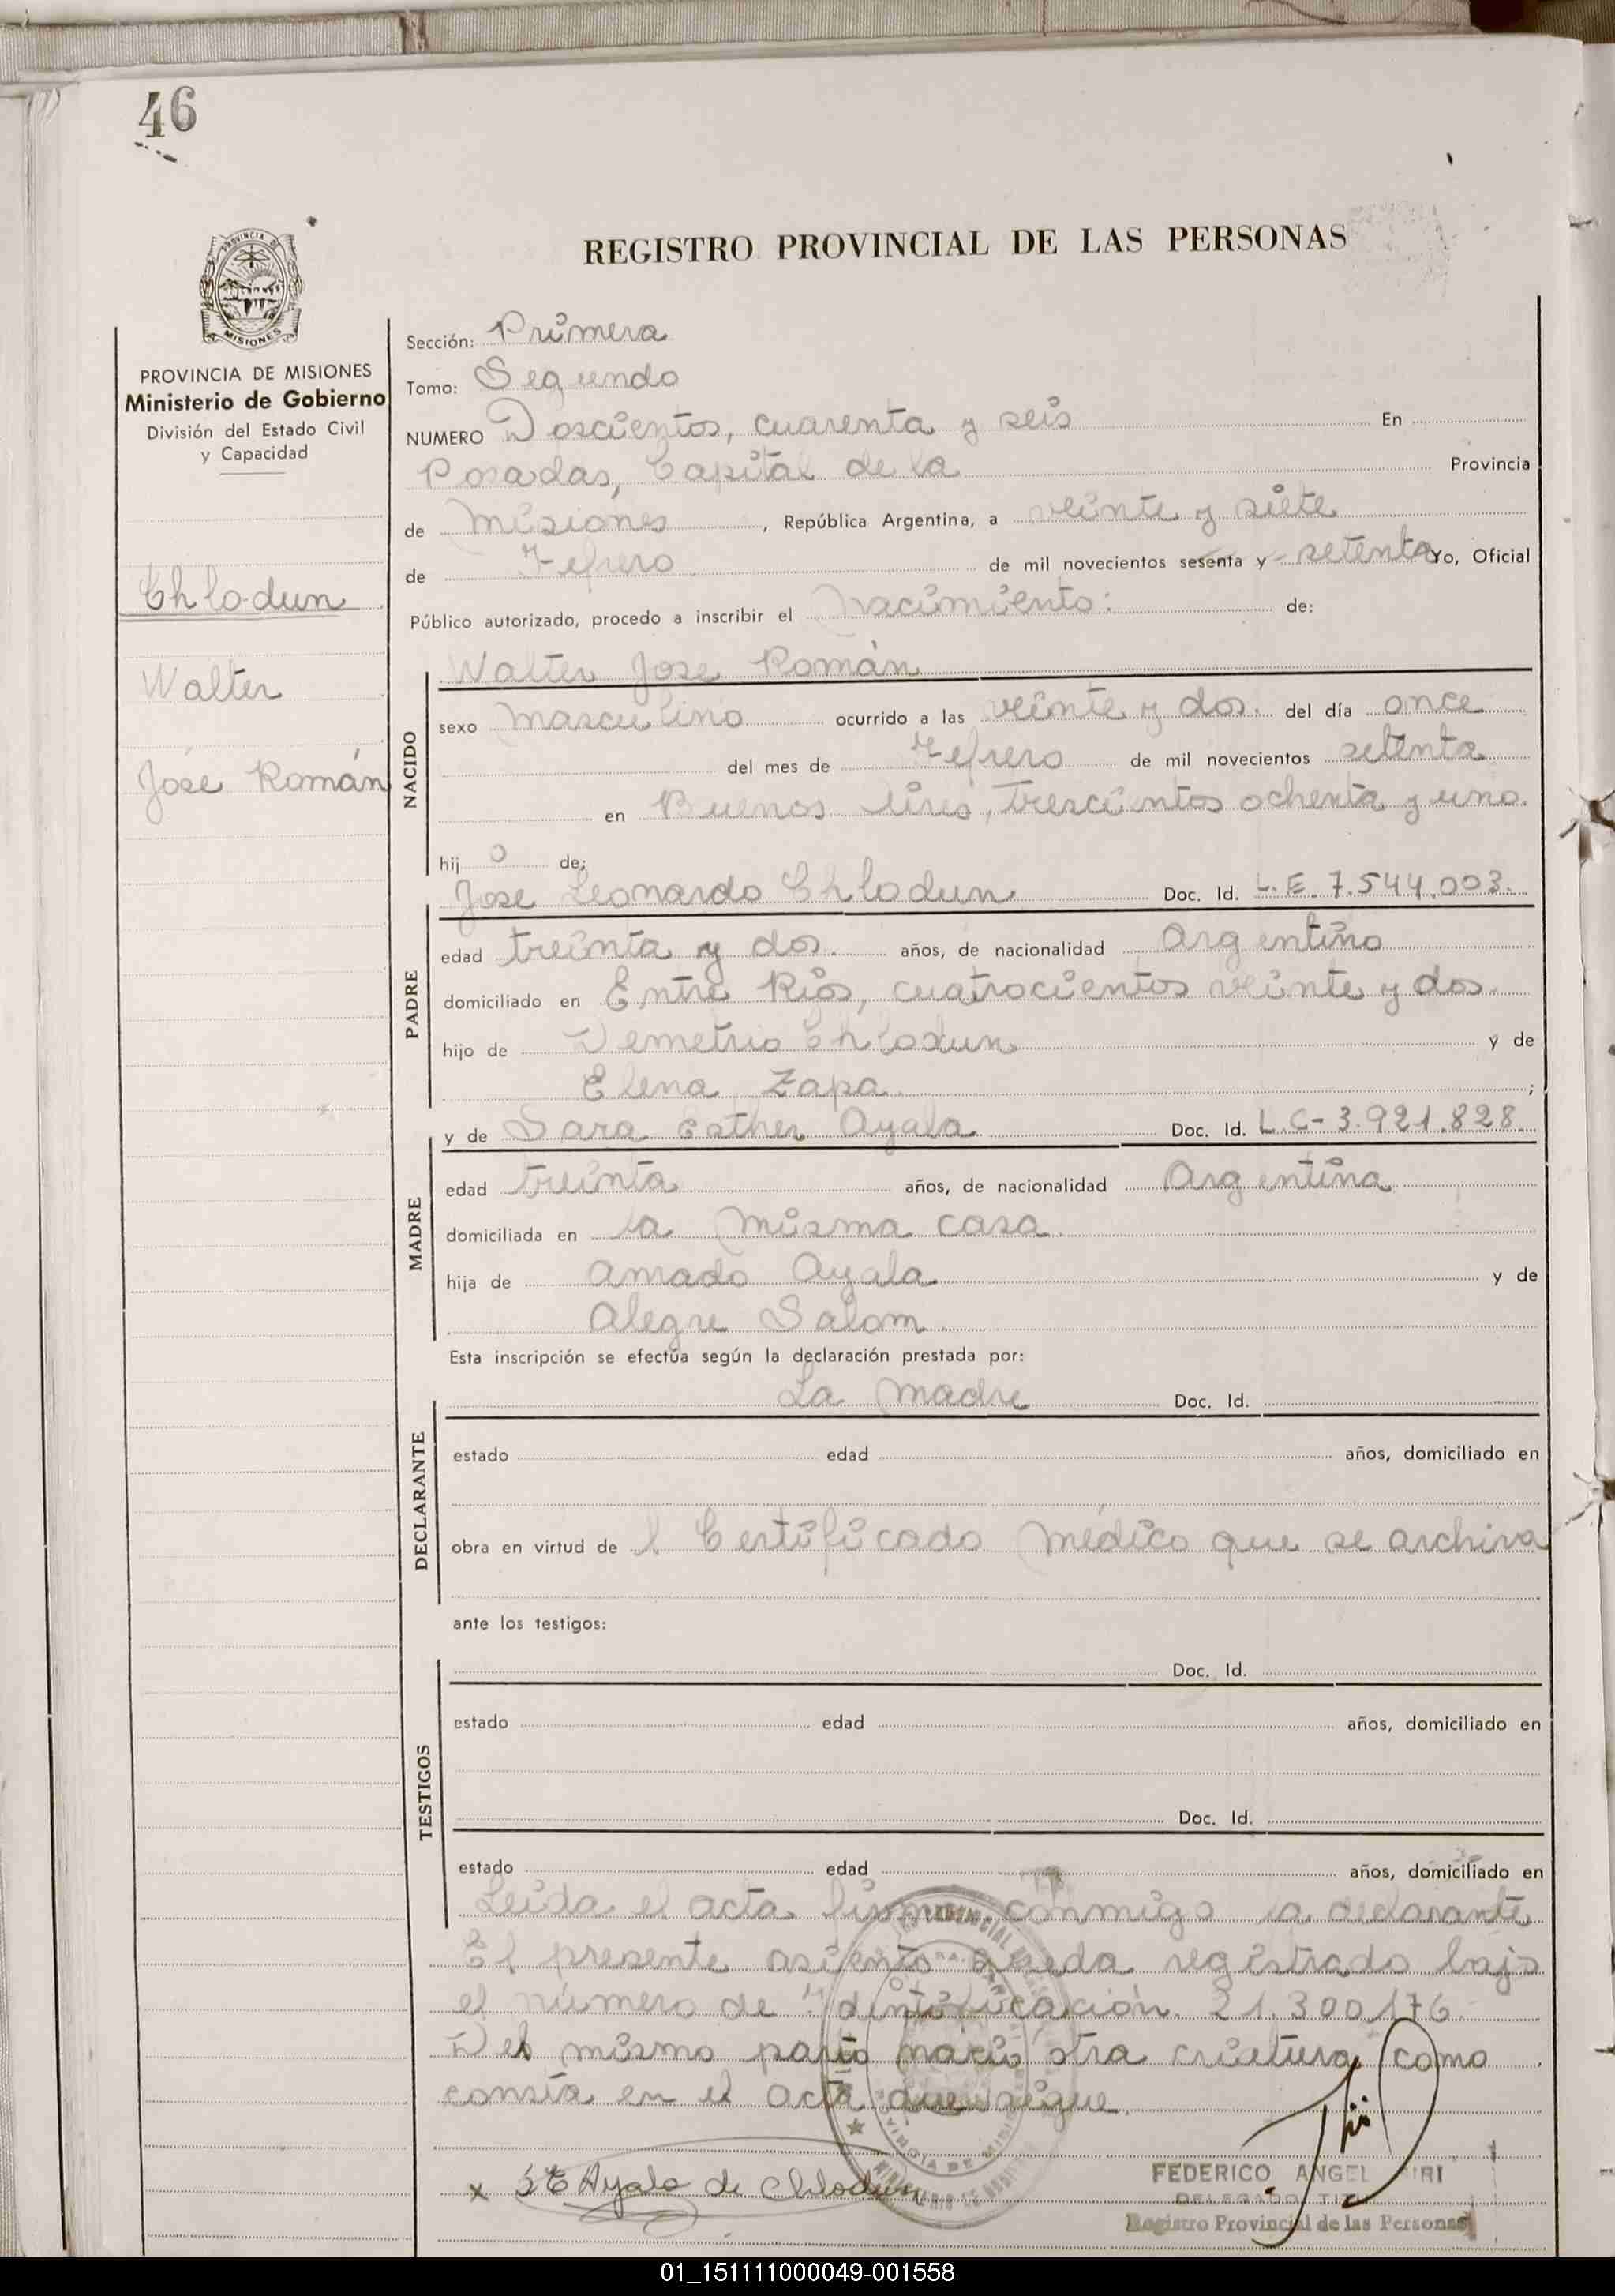 46
REGISTRO PROVINCIAL DE LAS PERSONAS
PROVINCIA DE MISIONES
Ministerio de Gobierno
División del Estado Civil
y Capacidad
Chlodun
Walter
José Román
Sección: Primera
Tomo: Segundo
NUMERO Doscientos, cuarenta y seis En
Posadas, Capital de la Provincia
de Misiones, República Argentina, a veinte y siete
de Febrero de mil novecientos sesenta y setenta Yo, Oficial
Público autorizado, procedo a inscribir el nacimiento: de:
NACIDO
Walter Jose Román
sexo masculino ocurrido a las veinte y dos. del día once
del mes de Febrero de mil novecientos setenta
en Buenos Aires, trescientos ochenta y uno.
hij o de:
PADRE
Jose Leonardo Chlodun Doc. Id. L.E. 7.544.003.
edad treinta y dos. años, de nacionalidad Argentino
domiciliado en Entre Rios, cuatrocientos veinte y dos.
hijo de Demetrio Chlodun y de
Elena Zapa. ;
MADRE
y de Sara Esther Ayala Doc. Id. L.C-3.921.828.
edad treinta años, de nacionalidad Argentina
domiciliada en la misma casa.
hija de Amado Ayala y de
Alegre Salom
Esta inscripción se efectúa según la declaración prestada por:
DECLARANTE
La madre Doc. Id.
estado edad años, domiciliado en
obra en virtud de l Certificado médico que se archiva
ante los testigos:
TESTIGOS
Doc. Id.
estado edad años, domiciliado en
Doc. Id.
estado edad años, domiciliado en
Leida el acta firma conmigo la declarante
El presente asiento queda registrado bajo
el número de Identificación 21.300176.
Del mismo parto nació otra criatura como
consta en el acta que sigue.
x S E Ayala de Chlodun
FEDERICO ANGEL
DELEGADO TITU
Registro Provincial de las Personas
01_151111000049-001558